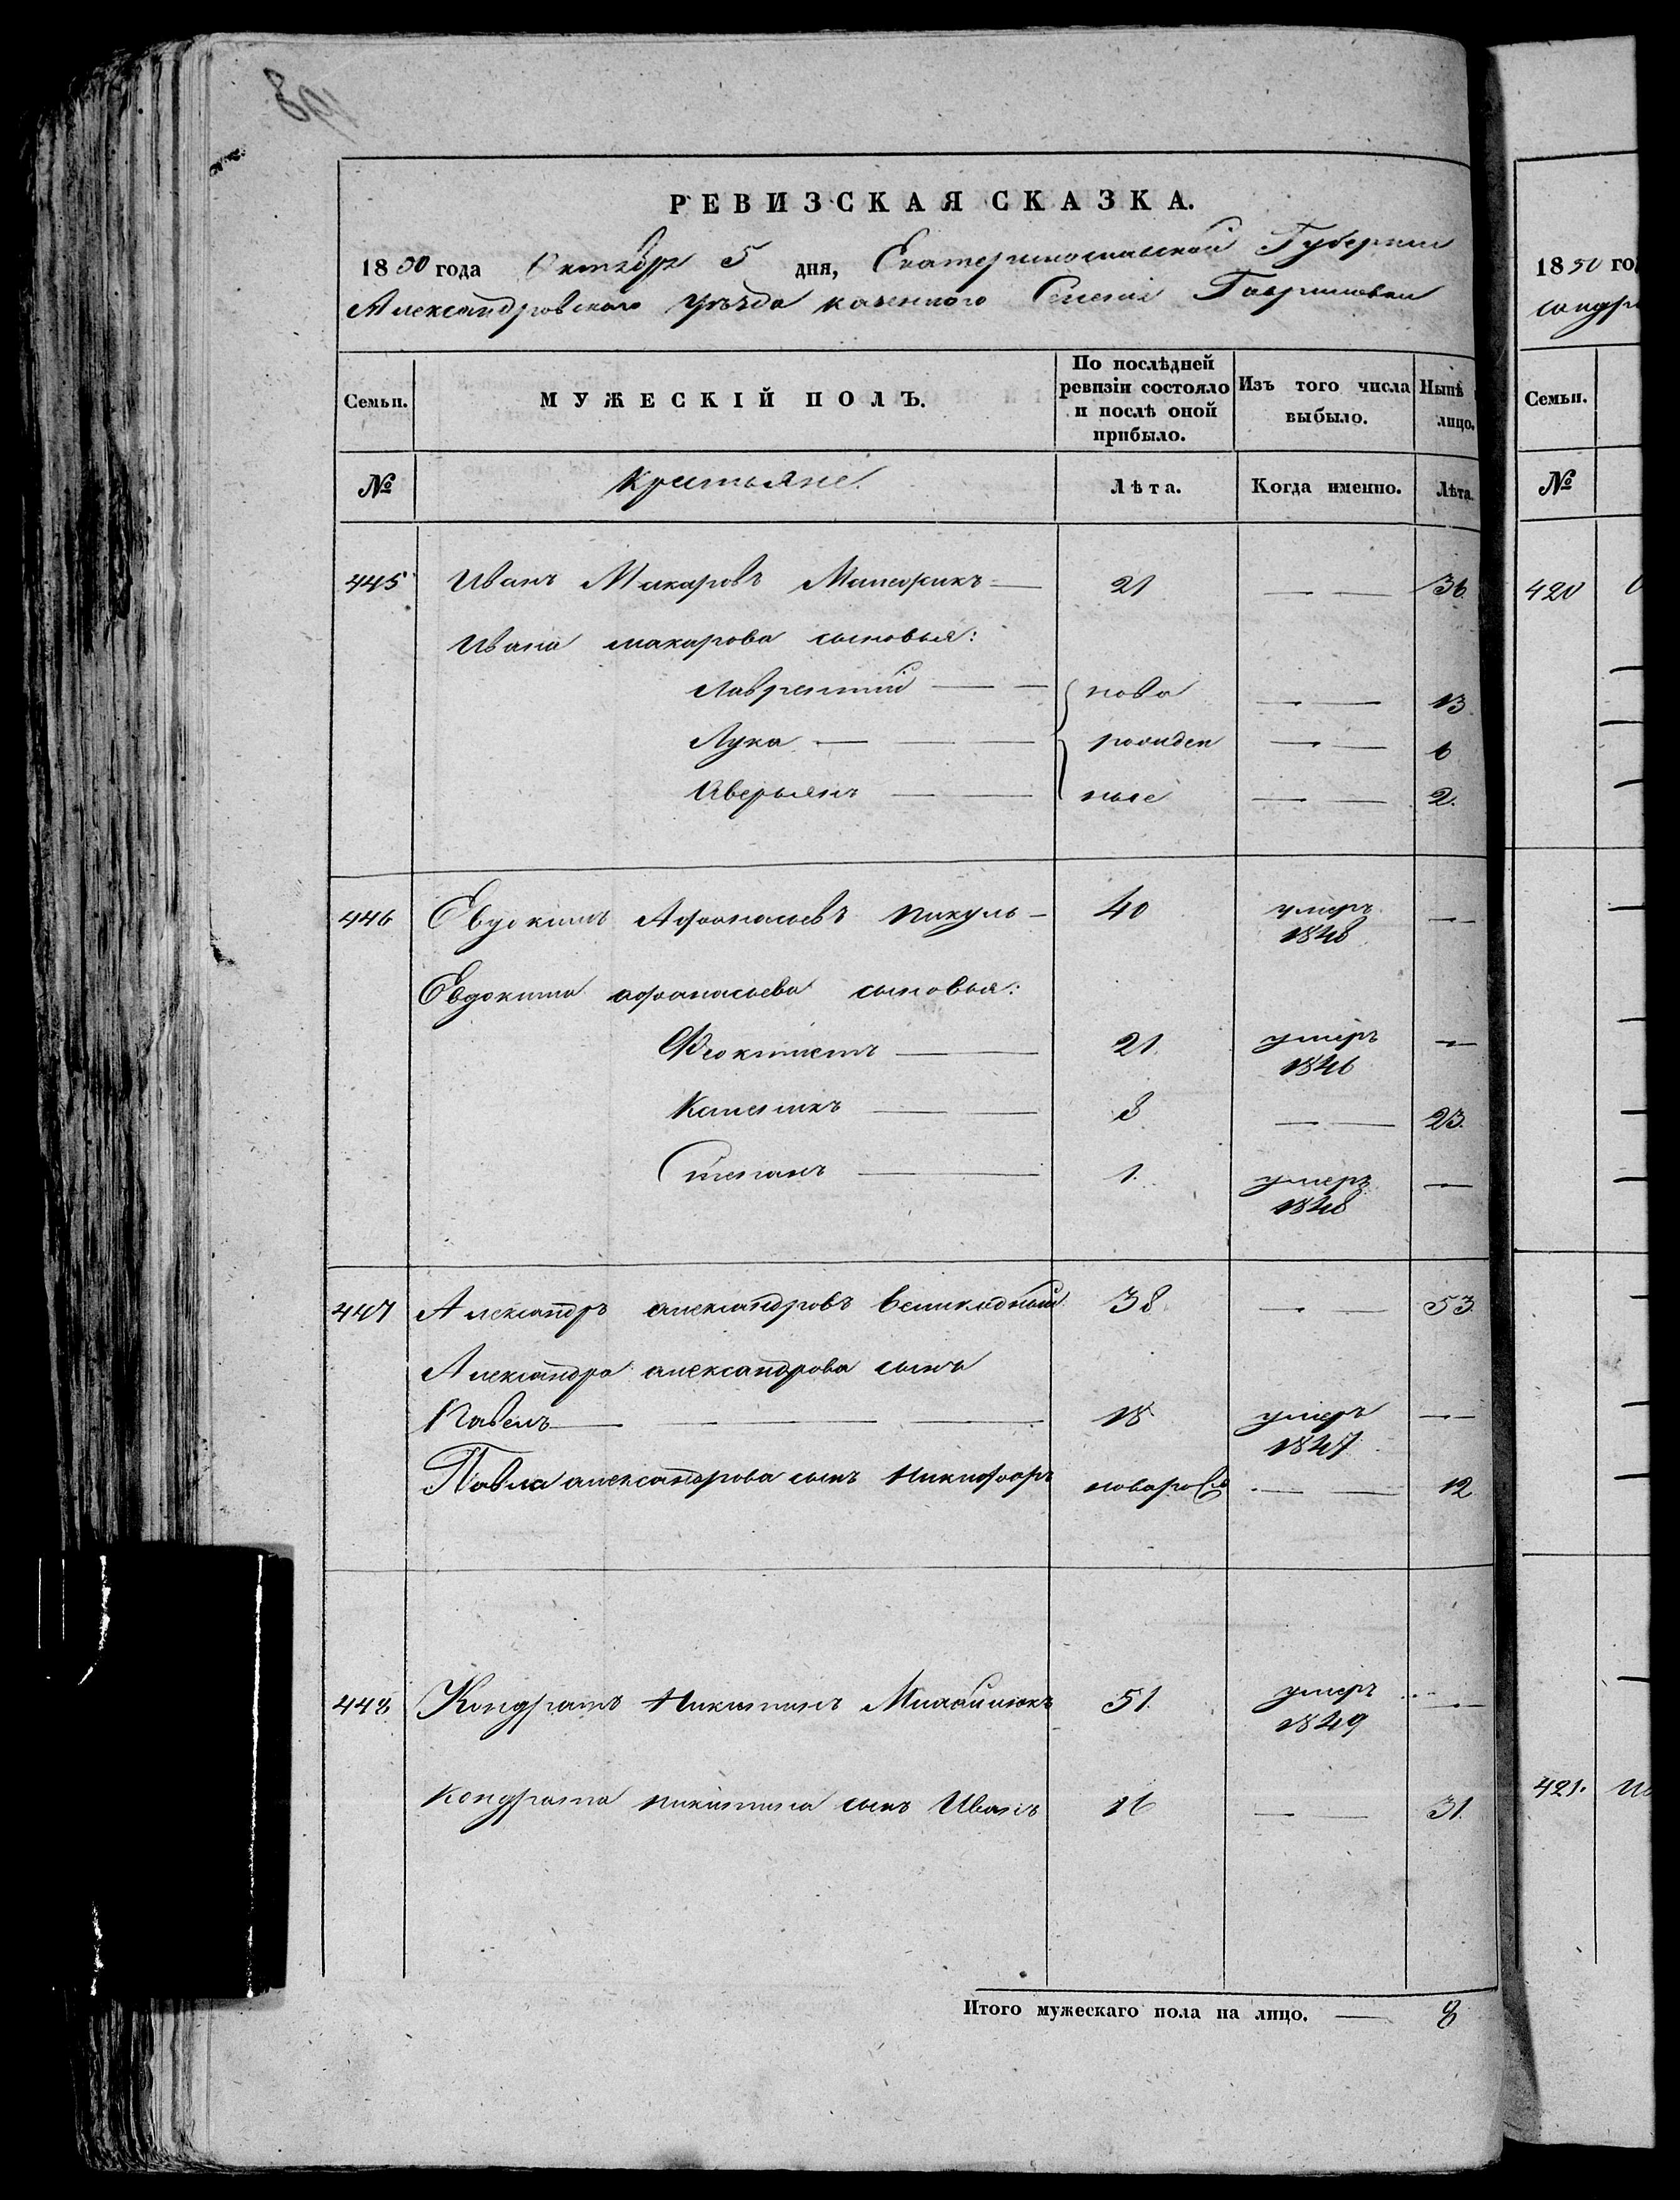 РЕВИЗСКАЯ СКАЗКА.
1850 года Октября 5 дня, Екатеринославской Губернии
Александровского уезда казенного Селения Гавриловки
Семьи. МУЖЕСКІЙ ПОЛЪ. По послѣдней ревизіи состояло и послѣ оной прибыло. Изъ того числа выбыло. Нынѣ лицо.
№ крестьяне Лѣта. Когда именно. Лѣта.
445 Иванъ Макаровъ 21 — — 36
Ивана макарова сыновья:
Лаврентий — — ново — — 13
Лука — — — рожден — — 6
Аверьянъ — — ные — — 2.
446 Евдокимъ Афонасьевъ пикуль — 40 умеръ 1848 —
Евдокима афонасьева сыновья:
Феоктистъ — 21. умеръ 1846 —
8 — — 23.
Степанъ — 1. умеръ 1848 —
447 Александръ александровъ великодный 38 — — 53
Александра александрова сынъ
Павелъ — — — 18 умеръ 1847 —
Павла александрова сынъ Никифоръ новорож — — 12
448 Кондратъ Никитинъ Михайлюкъ 51. умеръ 1849 —
Кондрата никитина сынъ Иванъ 16 — — 31.
Итого мужескаго пола на лицо. — 8
1850 го
Семьи.
№
420
421.